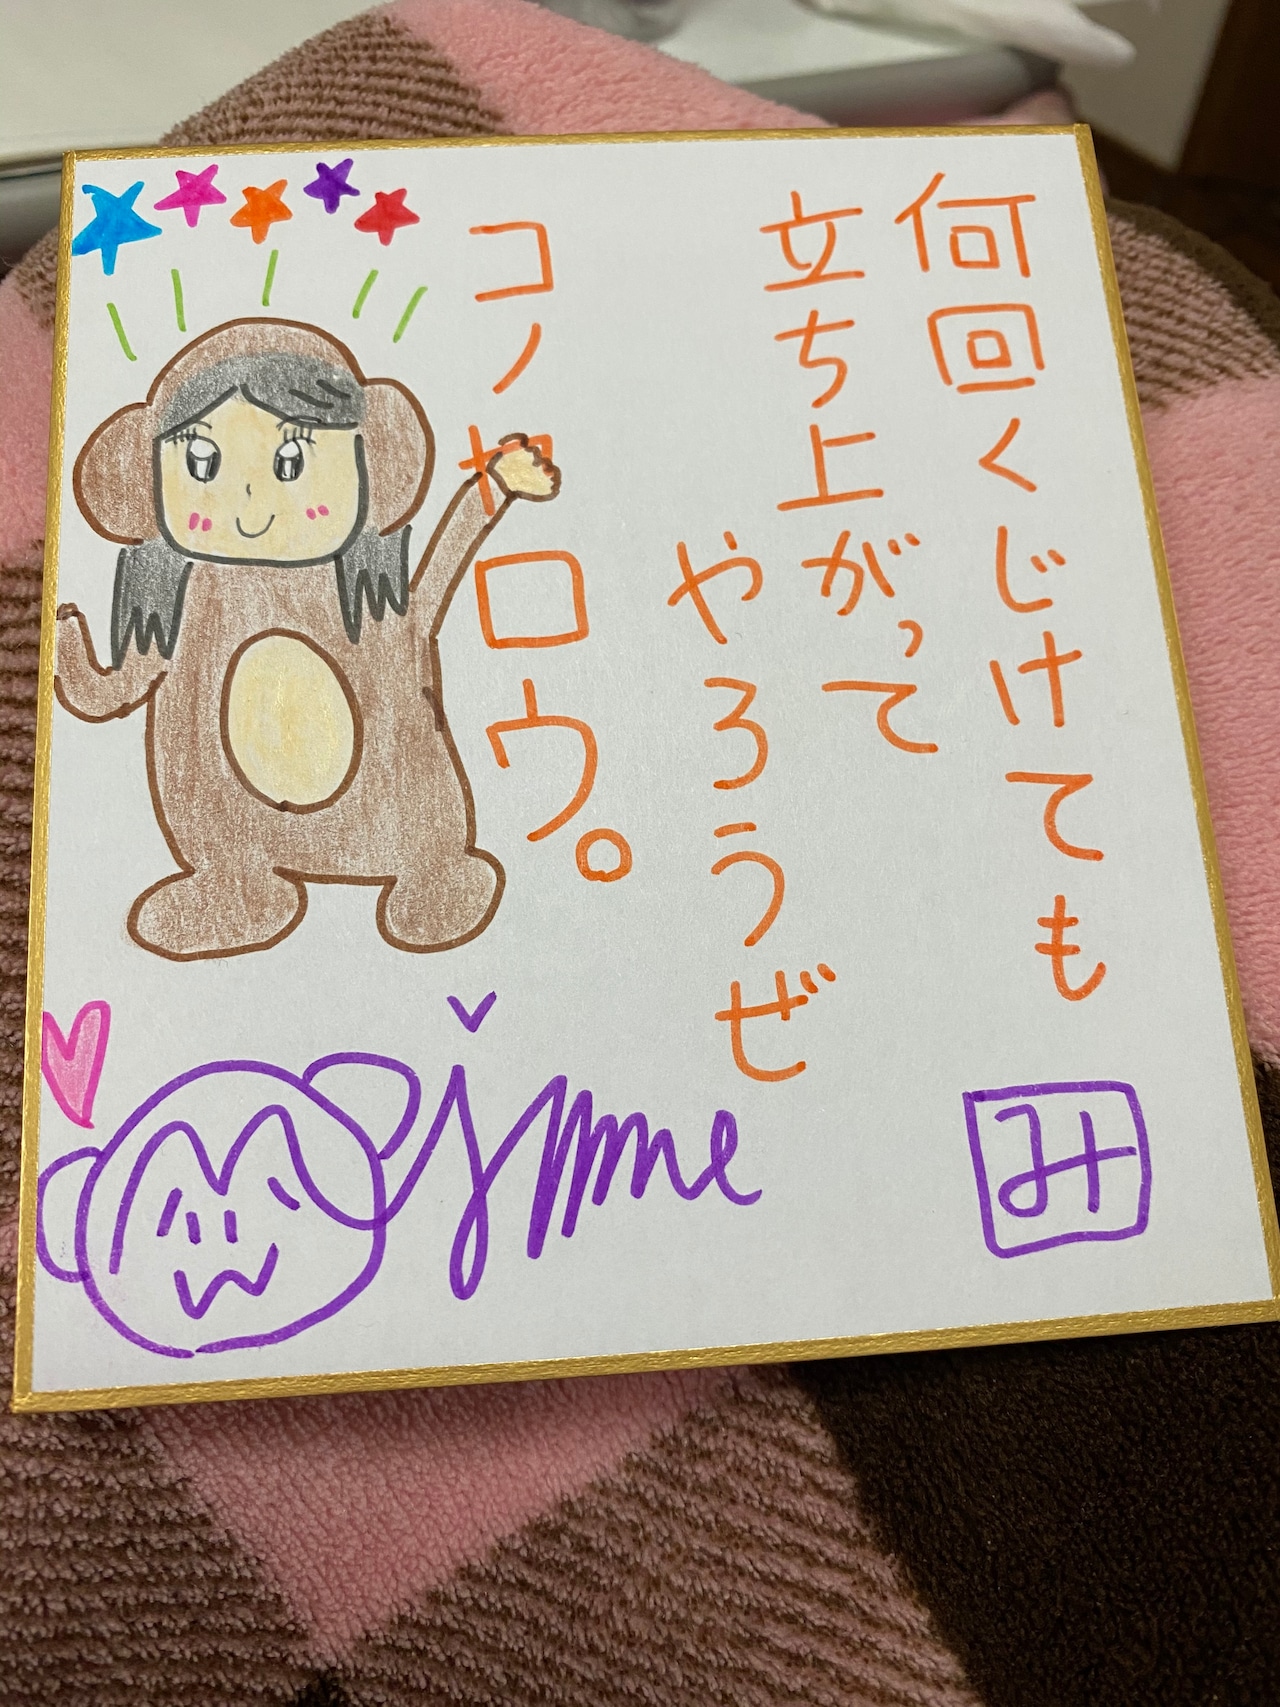 何回くじけても
立ち上がって
やろうぜ
コノヤロウ。
み